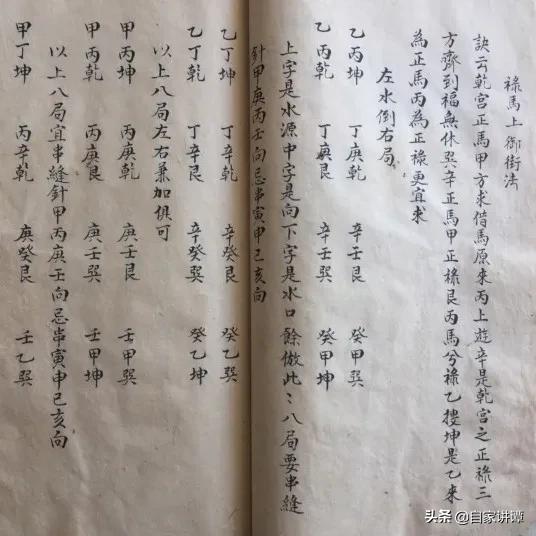 祿馬上御街法
訣云乾宮正馬甲方求借馬原來丙上遊辛是乾宮之正祿三
方齊到福無休巽辛正馬甲正祿艮丙馬兮祿乙搜坤是乙來
為正馬丙為正祿更宜求
左水倒右局
乙丙坤 丁庚乾 辛壬艮 癸甲巽
乙丙乾 丁庚艮 辛壬巽 癸甲坤
上字是水源中字是向下字是水口餘倣此〻八局要串縫
針甲庚丙壬向忌串寅申巳亥向
乙丁坤 丁辛乾 辛癸艮 癸乙巽
乙丁乾 丁辛艮 辛癸巽 癸乙坤
以上八局左右兼加俱可
甲丙坤 丙庚乾 庚壬艮 壬甲巽
甲丙乾 丙庚艮 庚壬巽 壬甲坤
以上八局宜串縫針甲丙庚壬向忌串寅申巳亥向
甲丁坤 丙辛乾 庚癸艮 壬乙巽
头条 @自家讲谭